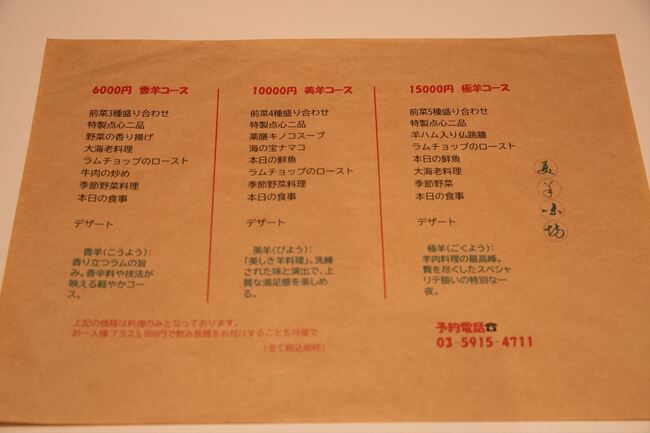 6000円 香羊コース
前菜3種盛り合わせ
特製点心二品
野菜の香り揚げ
大海老料理
ラムチョップのロースト
牛肉の炒め
季節野菜料理
本日の食事
デザート
香羊(こうよう):
香り立つラムの旨
み。香辛料や技法が
映える軽やかコー
ス。
10000円 美羊コース
前菜4種盛り合わせ
特製点心二品
薬膳キノコスープ
海の宝ナマコ
本日の鮮魚
ラムチョップのロースト
季節野菜料理
本日の食事
デザート
美羊(びよう):
「美しき羊料理」。洗練
された味と演出で、上
質な満足感を楽しめ
る。
15000円 極羊コース
前菜5種盛り合わせ
特製点心二品
羊ハム入り仏跳牆
ラムチョップのロースト
本日の鮮魚
大海老料理
季節野菜
本日の食事
デザート
極羊(ごくよう):
羊肉料理の最高峰。
贅を尽くしたスペシャ
リテ揃いの特別な一
夜。
美羊味坊
上記の価格は料理のみとなっております。
お一人様プラス3,000円で飲み放題をお付けすることも可能で
(全て税込価格)
予約電話☎
03-5915-4711